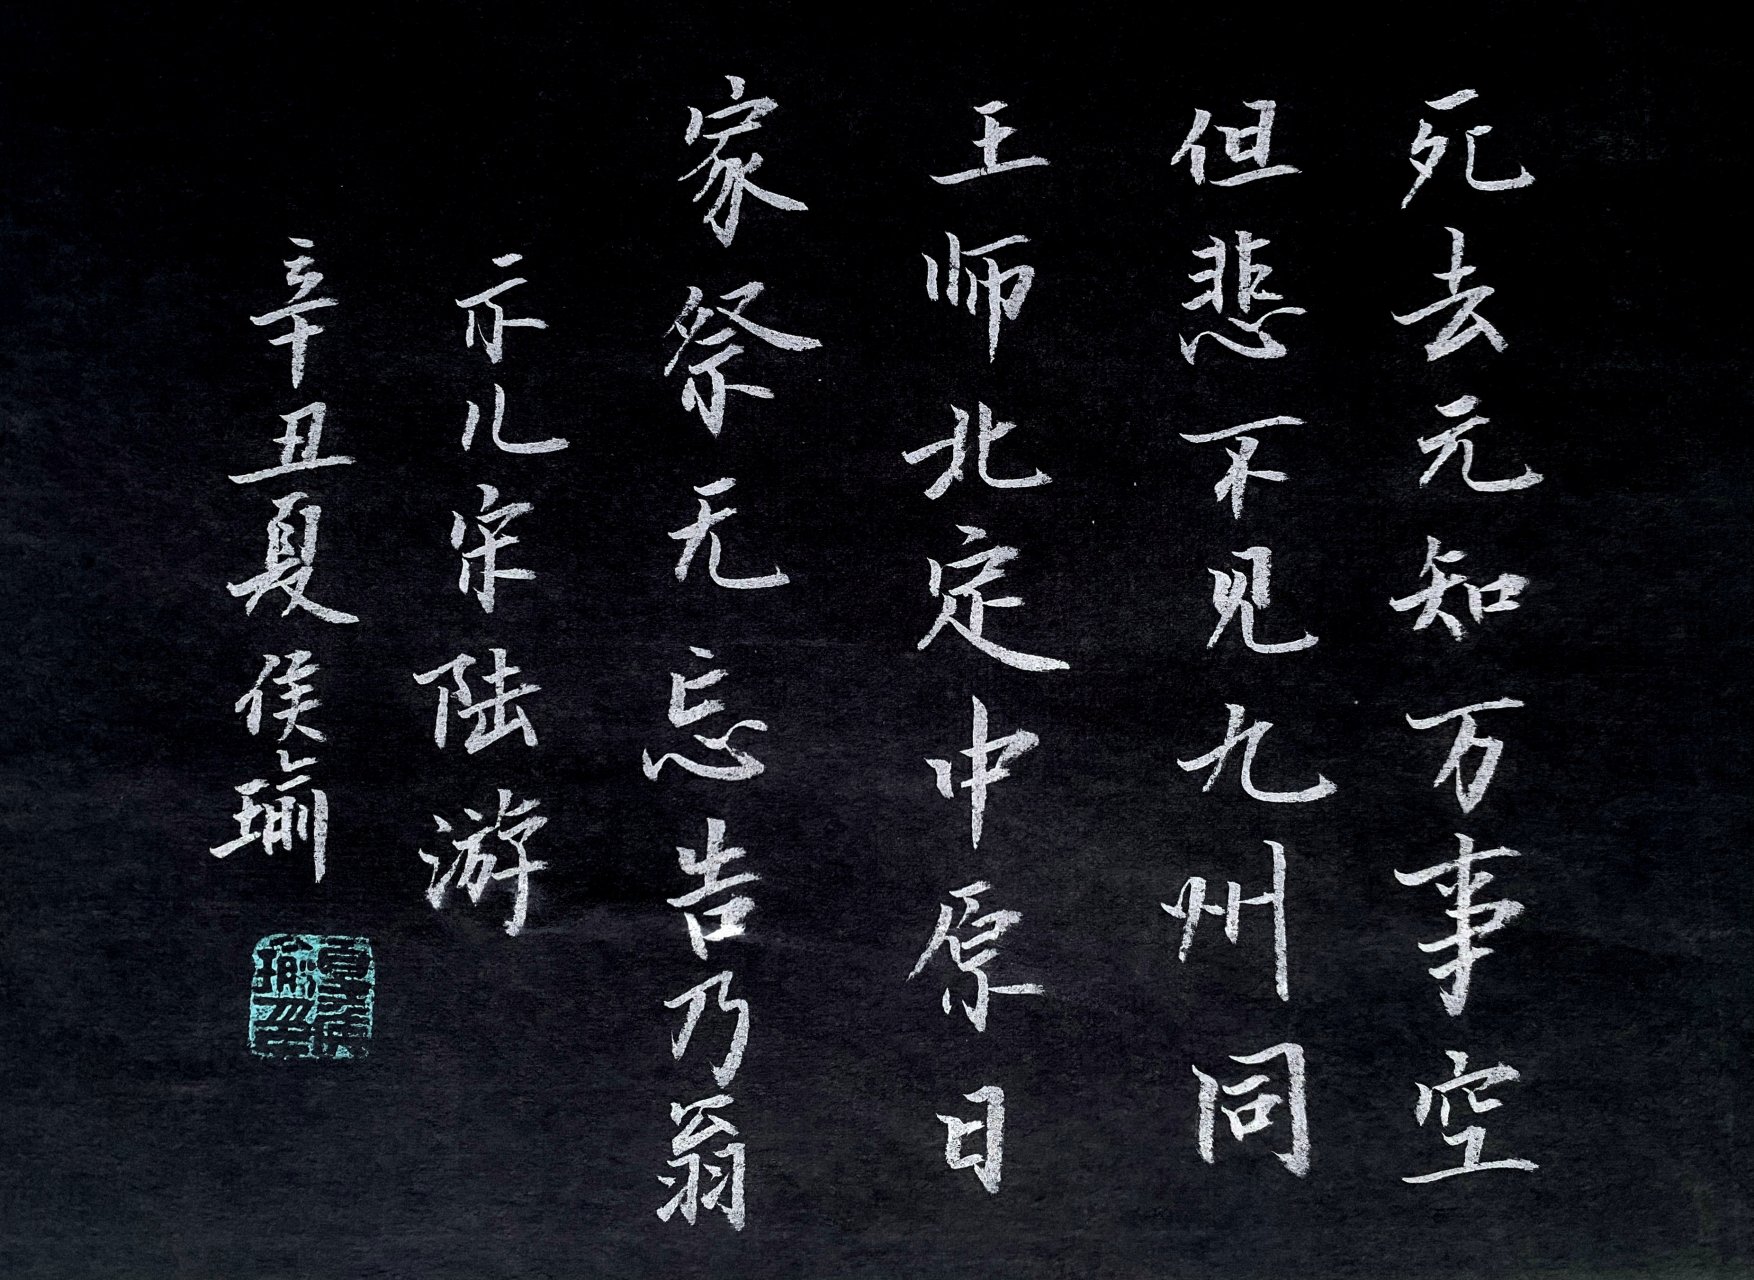 死去元知万事空
但悲不见九州同
王师北定中原日
家祭无忘告乃翁
示儿宋陆游
辛丑夏侯瑜